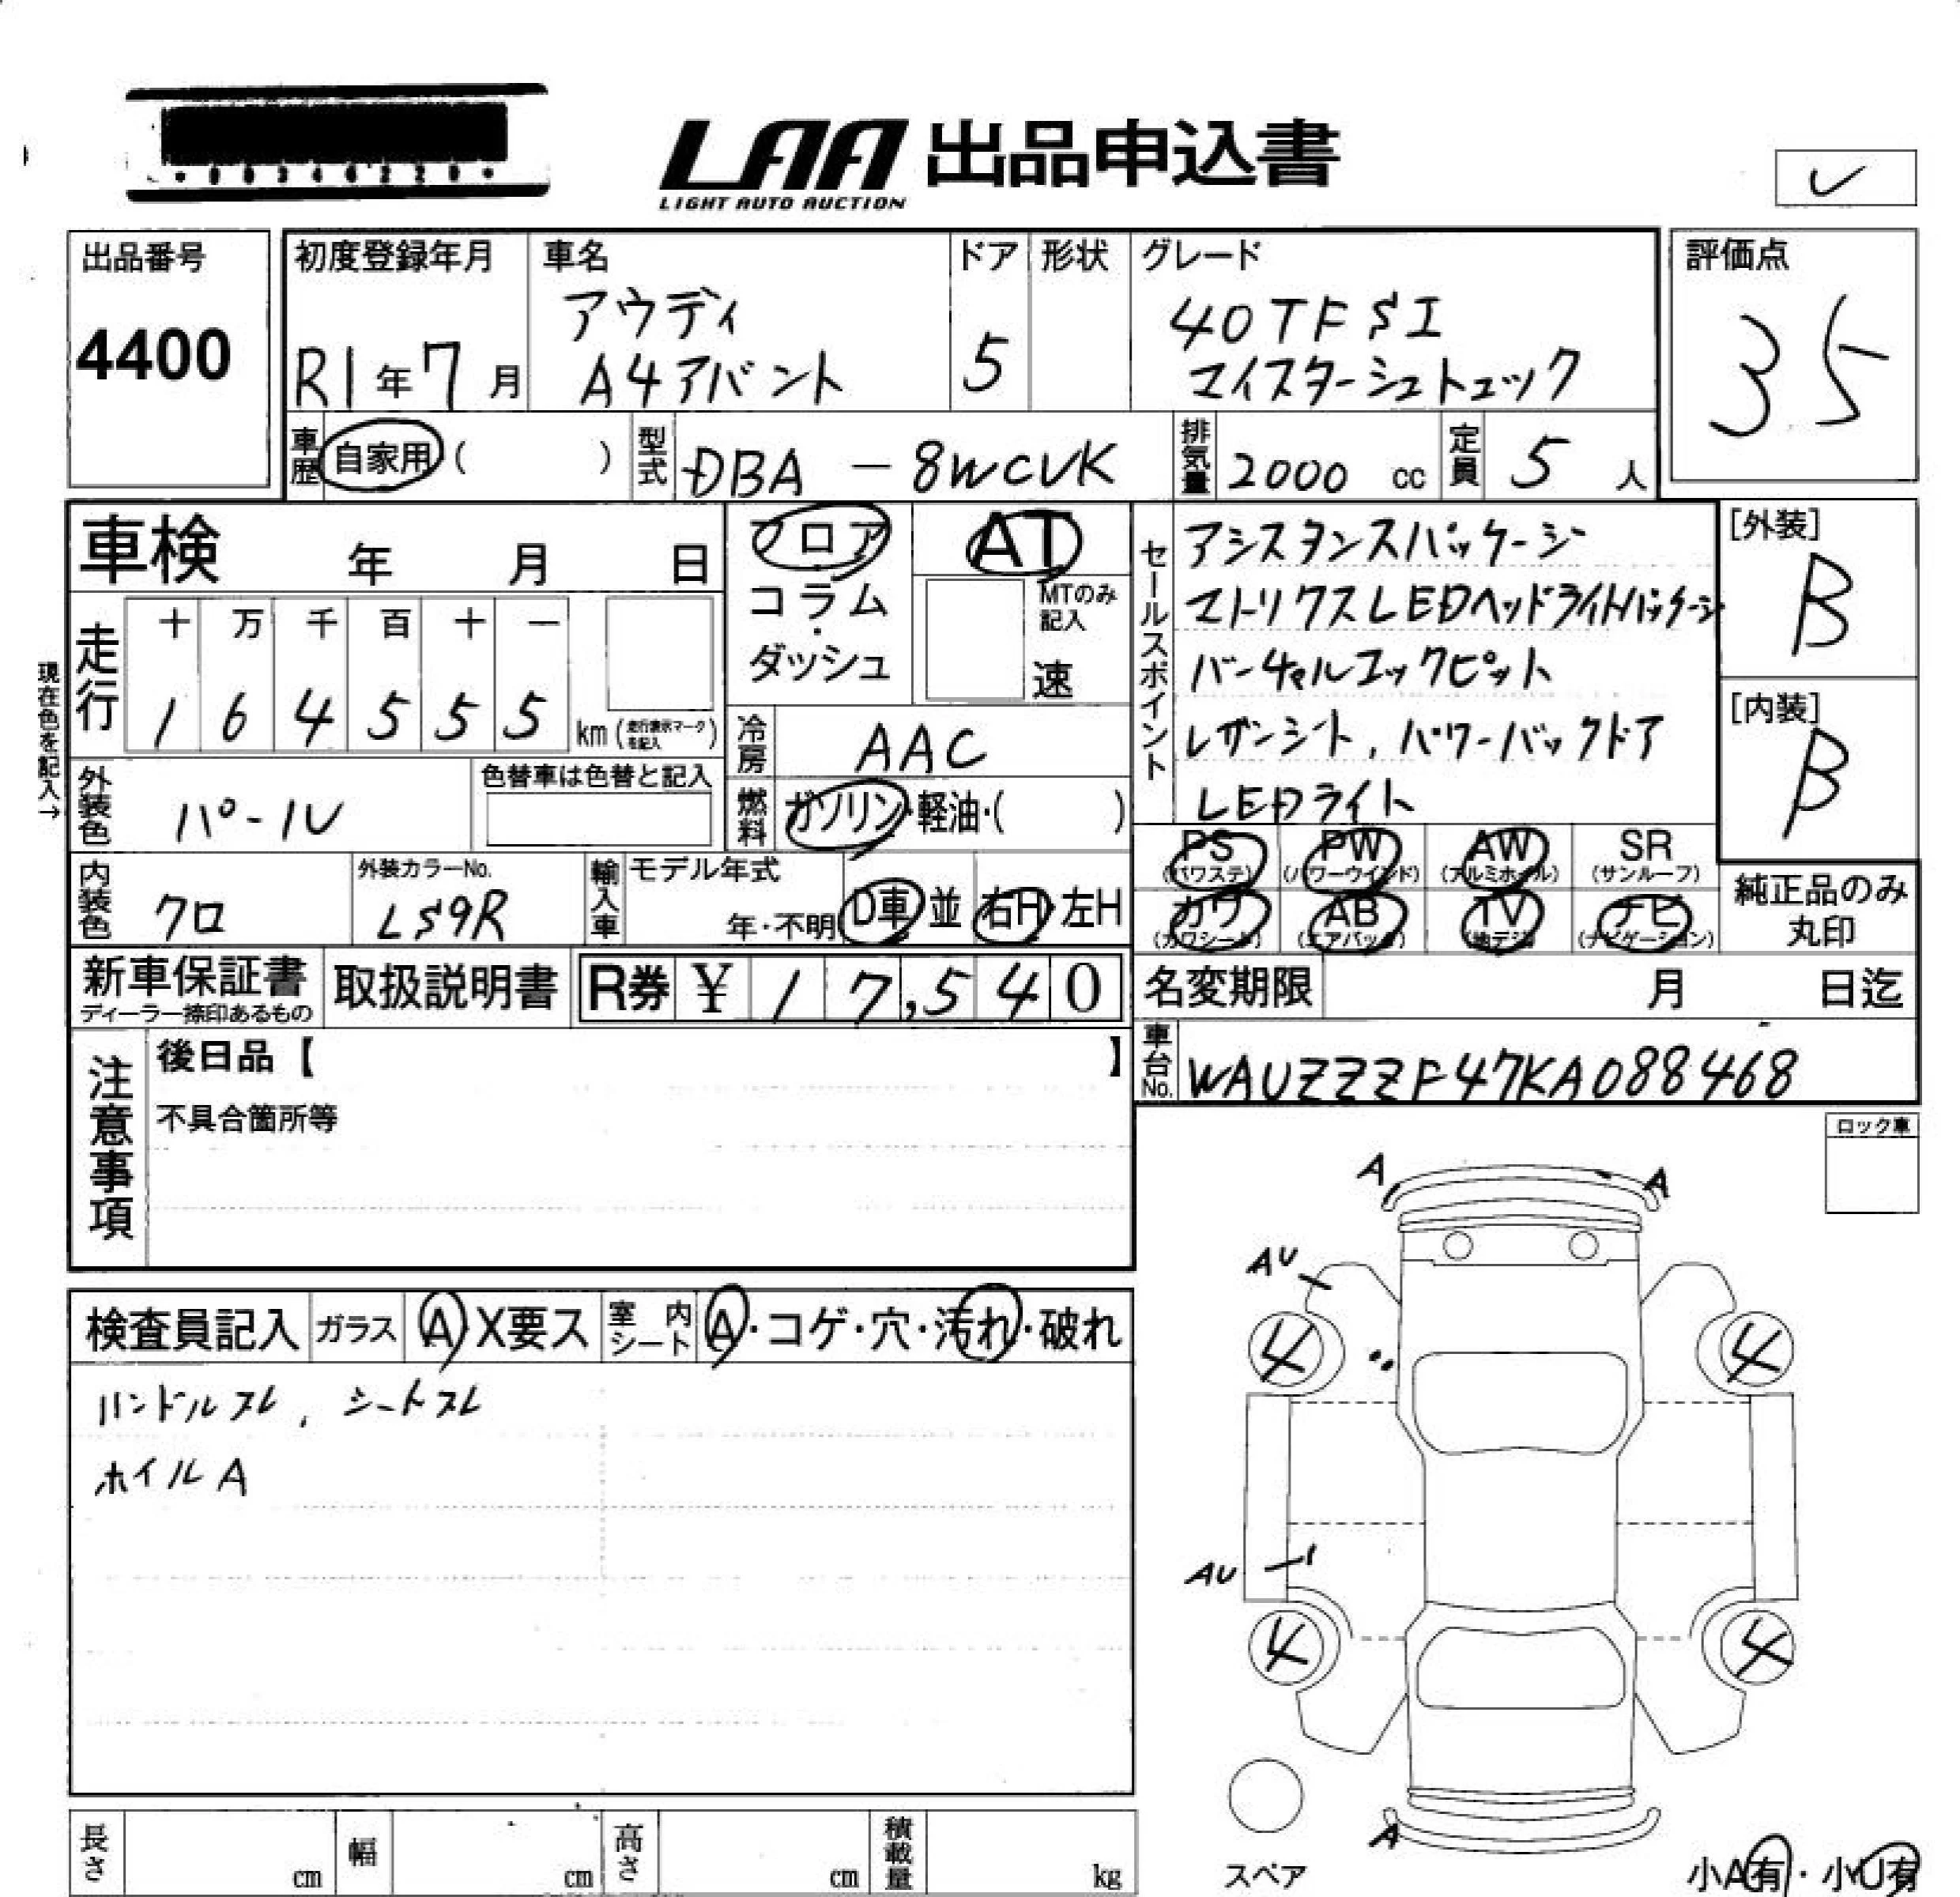 LAA 出品申込書
LIGHT AUTO AUCTION
出品番号
4400
初度登録年月
R1年7月
車名
アウディ
A4アバント
ドア
5
形状
グレード
40TFSI
マイスターシュトュック
評価点
35
車歴 自家用 ( )
型式 DBA-8WCVK
排気量 2000 cc
定員 5 人
車検 年 月 日
フロア
コラム
・
ダッシュ
AT
MTのみ
記入
速
セールスポイント
アシスタンスパッケージ
マトリクスLEDヘッドライトパッケージ
バーチャルコックピット
レザーシート, パワーバックドア
LEDライト
[外装]
B
[内装]
B
現在色を記入→
走行
十 万 千 百 十 一
1 6 4 5 5 5 km (走行表示マークを記入)
冷房 AAC
外装色 パール
色替車は色替と記入
燃料 ガソリン・軽油・( )
PS (パワステ)
PW (パワーウインド)
AW (アルミホイル)
SR (サンルーフ)
内装色 クロ
外装カラーNo.
LS9R
輸入車
モデル年式
年・不明
D車 並 右H 左H
カワ (カワシート)
AB (エアバック)
TV (地デジ)
ナビ (ナビゲーション)
純正品のみ
丸印
新車保証書
ディーラー捺印あるもの
取扱説明書
R券 ¥ 17,540
名変期限 月 日迄
車台No. WAUZZZF47KA088468
注意事項
後日品【 】
不具合箇所等
ロック車
検査員記入
ガラス A X要ス
室内シート A・コゲ・穴・汚れ・破れ
ハンドルスレ, シートスレ
ホイルA
A
A
AU
4
4
AU
4
4
A
スペア
小A有・小U有
長さ cm
幅 cm
高さ cm
積載量 kg